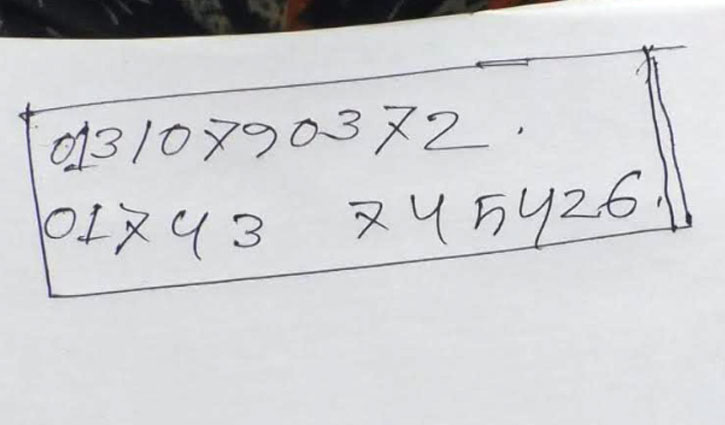 01310790372.
01743 745426.